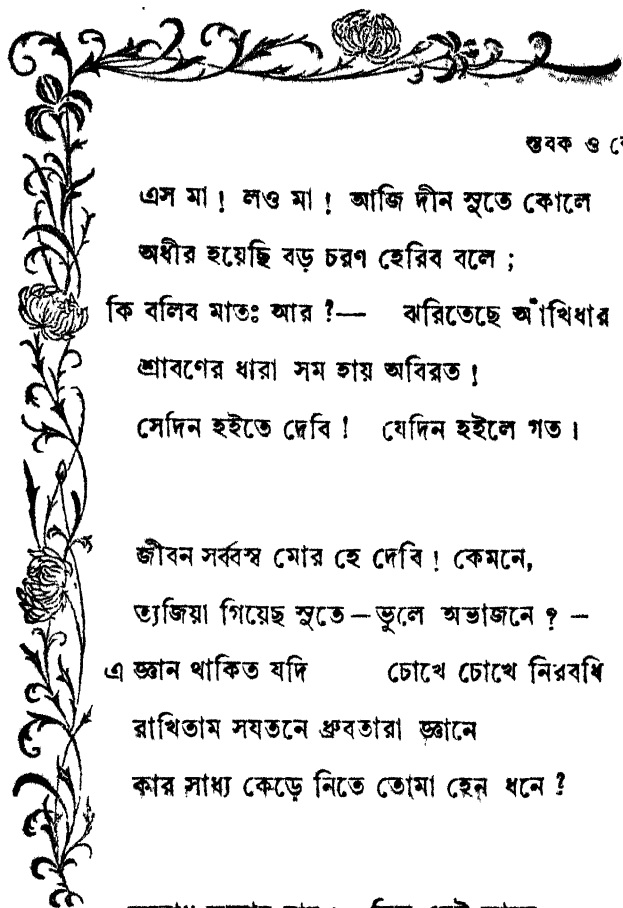 স্তবক ও
এস মা ! লও মা ! আজি দীন সুতে কোলে
অধীর হয়েছি বড় চরণ হেরিব বলে ;
কি বলিব মাতঃ আর ?— ঝরিতেছে আঁখিধার
শ্রাবণের ধারা সম হায় অবিরত !
সেদিন হইতে দেবি ! যেদিন হইলে গত ।
জীবন সর্ব্বস্ব মোর হে দেবি ! কেমনে,
ত্যজিয়া গিয়েছ সুতে – ভুলে অভাজনে ? –
এ জ্ঞান থাকিত যদি চোখে চোখে নিরবধি
রাখিতাম সযতনে ধ্রুবতারা জ্ঞানে
কার সাধ্য কেড়ে নিতে তোমা হেন ধনে ?